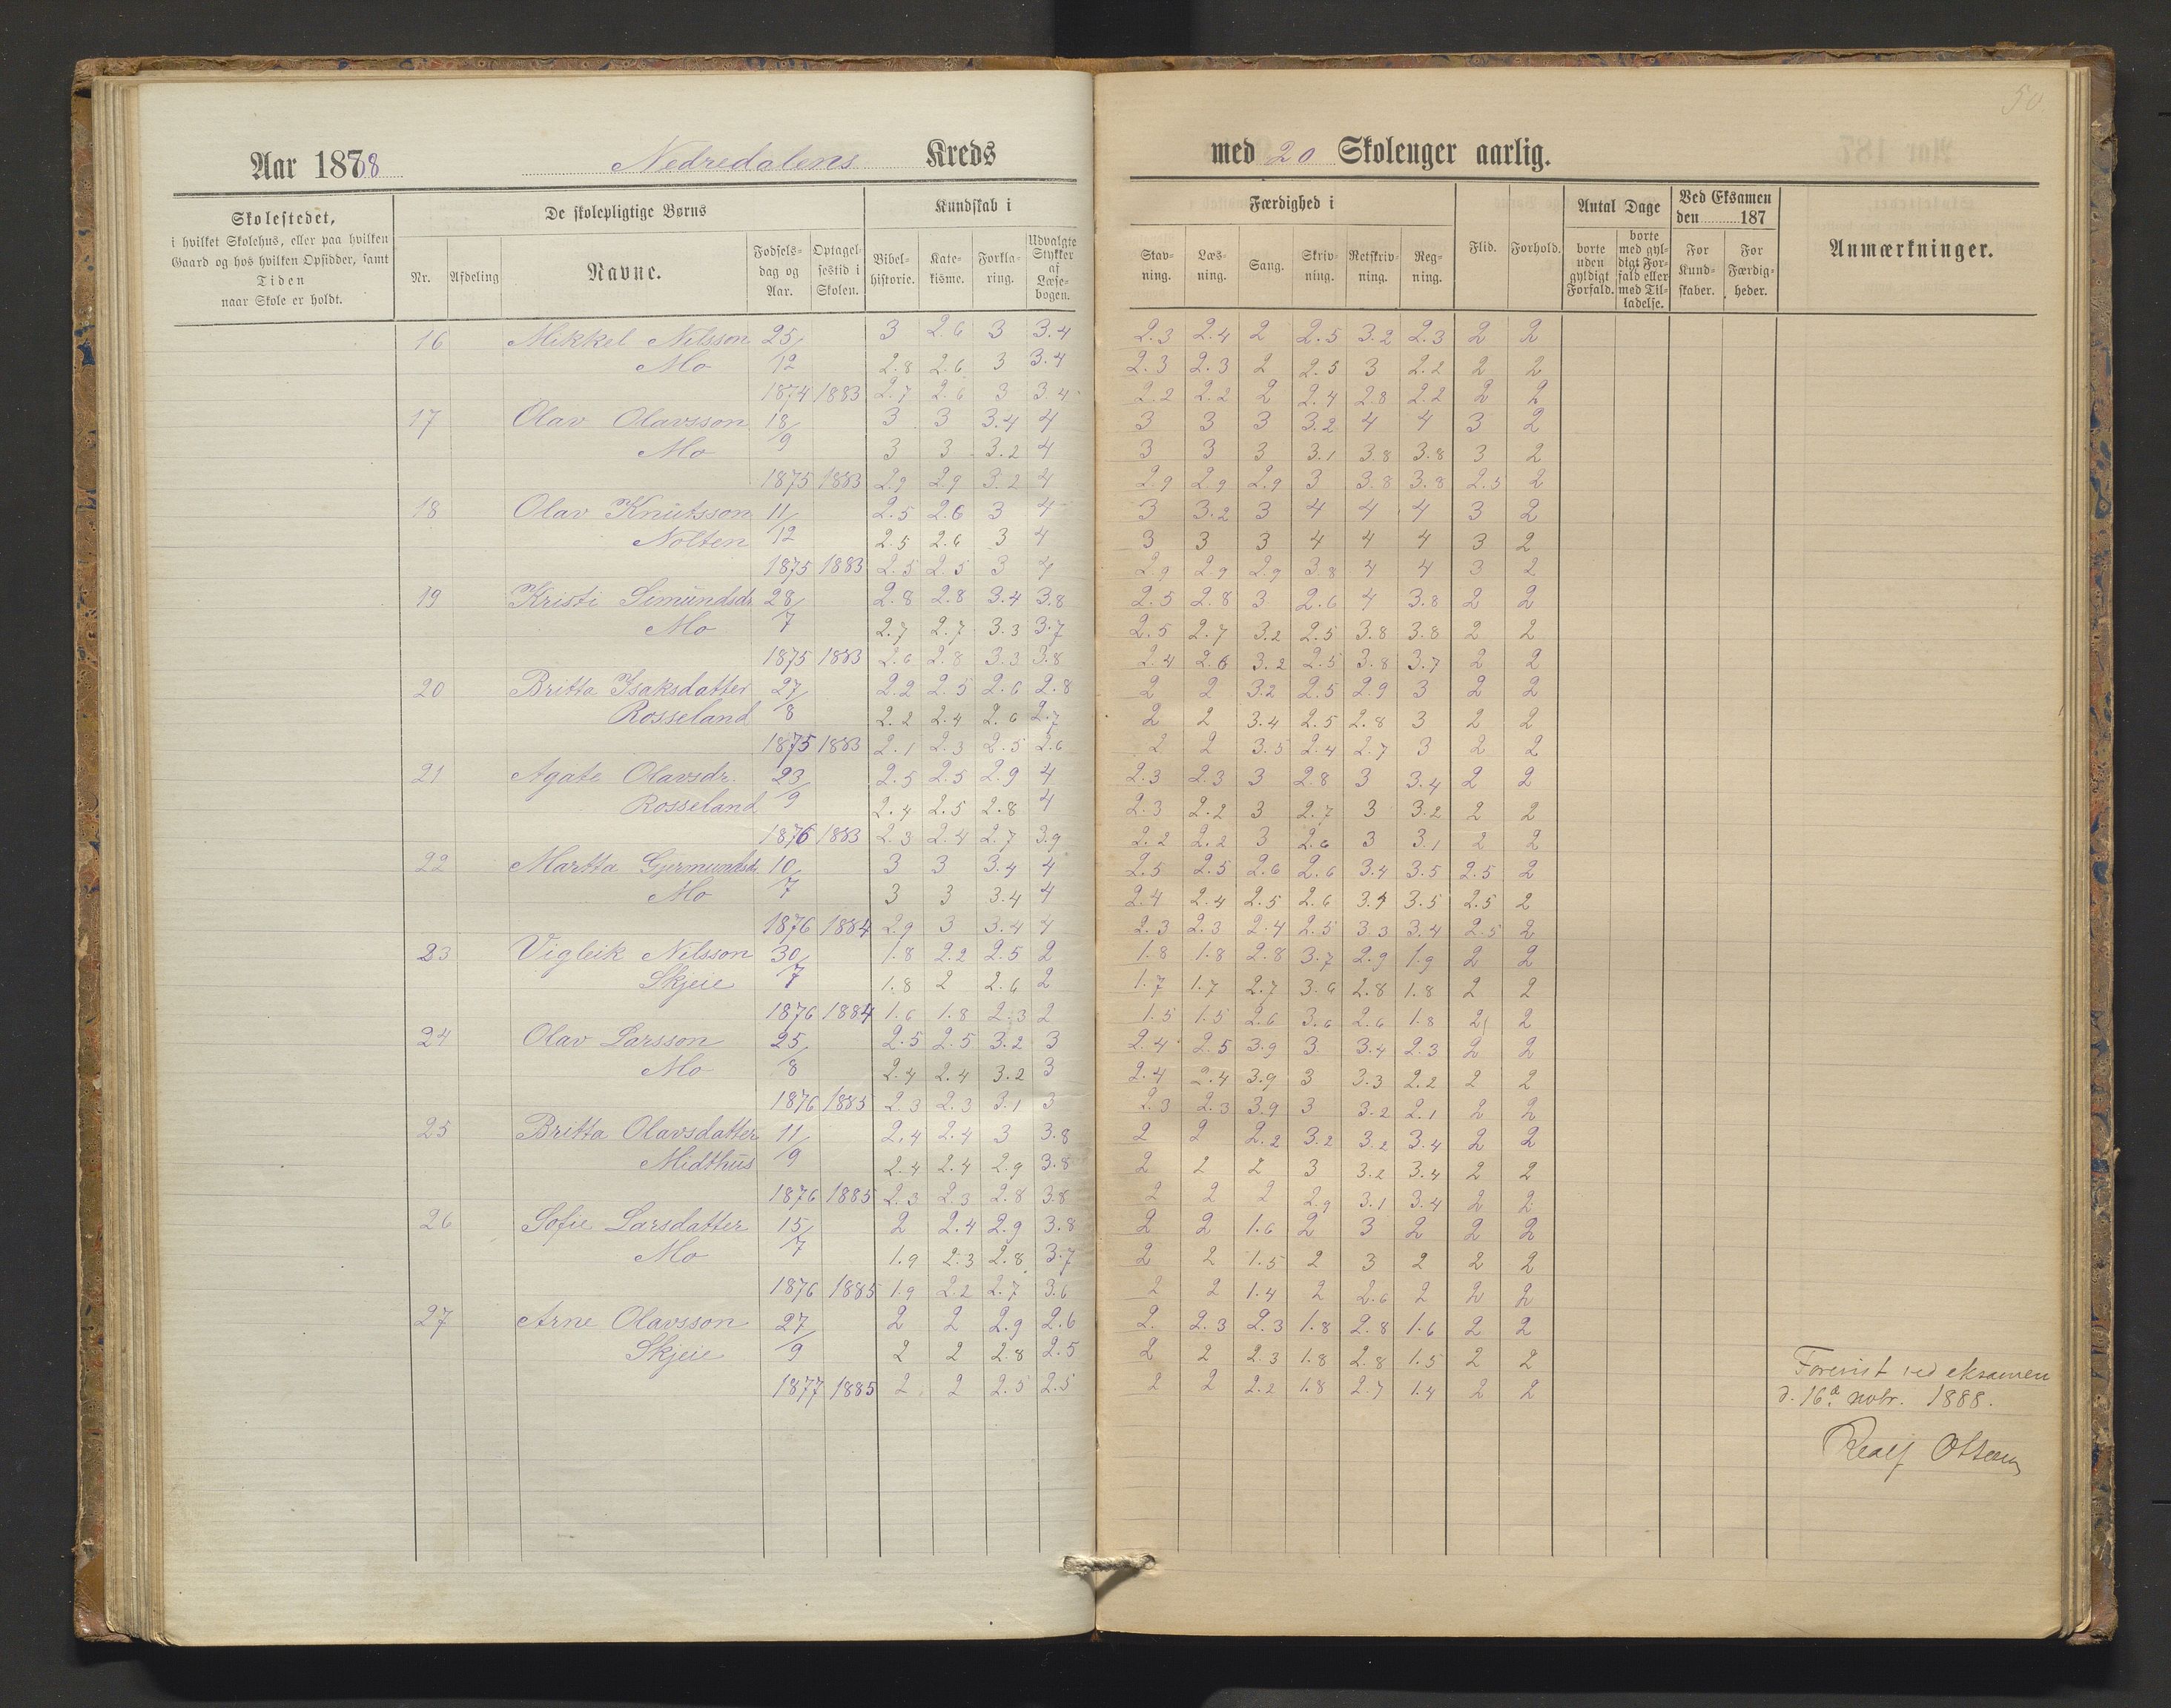 50
Aar 1888 Nedredalens Kreds med 20 Skolenger aarlig.
Skolestedet, i hvilket Skolehus, eller paa hvilken Gaard og hos hvilken Opsidder, samt Tiden naar Skole er holdt.
De skolepligtige Børns
Nr. Afdeling Navne. Fødsels-dag og Aar. Optagel-sestid i Skolen.
Kundskab i
Bibel-historie. Kate-kisme. Forkla-ring. Udvalgte Stykker af Læse-bogen.
Færdighed i
Stav-ning. Læs-ning. Sang. Skriv-ning. Retskriv-ning. Reg-ning.
Flid. Forhold.
Antal Dage
borte uden gyldigt Forfald. borte med gyl-digt For-fald eller med Til-ladelse.
Ved Eksamen den 187
For Kund-skaber. For Færdig-heder.
Anmærkninger.
16 Mikkel Nilsson 25/ 3 2.6 3 3.4 2.3 2.4 2 2.5 3.2 2.3 2 2
Mo 12 2.8 2.6 3 3.4 2.3 2.3 2 2.5 3 2.2 2 2
1874 1883 2.7 2.6 3 3.4 2.2 2.2 2 2.4 2.8 2.2 2 2
17 Olav Olavsson 18/ 3 3 3.4 4 3 3 3 3.2 4 4 3 2
Mo 9 3 3 3.2 4 3 3 3 3.1 3.8 3.8 3 2
1875 1883 2.9 2.9 3.2 4 2.9 2.9 2.9 3 3.8 3.8 2.5 2
18 Olav Knutsson 11/ 2.5 2.6 3 4 3 3.2 3 4 4 4 3 2
Nolten 12 2.5 2.6 3 4 3 3 3 4 4 4 3 2
1875 1883 2.5 2.5 3 4 2.9 2.9 2.9 3.8 4 4 3 2
19 Kristi Simundsdr 28/ 2.8 2.8 3.4 3.8 2.5 2.8 3 2.6 4 3.8 2 2
Mo 7 2.7 2.7 3.3 3.7 2.5 2.7 3.2 2.5 3.8 3.8 2 2
1875 1883 2.6 2.8 3.3 3.8 2.4 2.6 3.2 2.5 3.8 3.7 2 2
20 Britta Isaksdatter 27/ 2.2 2.5 2.6 2.8 2 2 3.2 2.5 2.9 3 2 2
Rosseland 8 2.2 2.4 2.6 2.7 2 2 3.4 2.5 2.8 3 2 2
1875 1883 2.1 2.3 2.5 2.6 2 2 3.5 2.4 2.7 3 2 2
21 Agate Olavsdr. 23/ 2.5 2.5 2.9 4 2.3 2.3 3 2.8 3 3.4 2 2
Rosseland 9 2.4 2.5 2.8 4 2.3 2.2 3 2.7 3 3.2 2 2
1876 1883 2.3 2.4 2.7 3.9 2.2 2.2 3 2.6 3 3.1 2 2
22 Martta Gjermundsdr 10/ 3 3 3.4 4 2.5 2.5 2.6 2.6 3.4 3.5 2.5 2
Mo 7 3 3 3.4 4 2.4 2.4 2.5 2.6 3.4 3.5 2.5 2
1876 1884 2.9 3 3.4 4 2.3 2.3 2.4 2.5 3.3 3.4 2.5 2
23 Vigleik Nilsson 30/ 1.8 2.2 2.5 2 1.8 1.8 2.8 3.7 2.9 1.9 2 2
Skjeie 7 1.8 2 2.6 2 1.7 1.7 2.7 3.6 2.8 1.8 2 2
1876 1884 1.6 1.8 2.3 2 1.5 1.5 2.6 3.6 2.6 1.8 2 2
24 Olav Larsson 25/ 2.5 2.5 3.2 3 2.4 2.5 3.9 3 3.4 2.3 2 2
Mo 8 2.4 2.4 3.2 3 2.4 2.4 3.9 3 3.3 2.2 2 2
1876 1885 2.3 2.3 3.1 3 2.3 2.3 3.9 3 3.2 2.1 2 2
25 Britta Olavsdatter 11/ 2.4 2.4 3 3.8 2 2 2.2 3.2 3.2 3.4 2 2
Midthus 9 2.4 2.4 2.9 3.8 2 2 2 3 3.2 3.4 2 2
1876 1885 2.3 2.3 2.8 3.8 2 2 2 2.9 3.1 3.4 2 2
26 Sofie Larsdatter 15/ 2 2.4 2.9 3.8 2 2 1.6 2 3 2 2 2
Mo 7 1.9 2.3 2.8 3.7 2 2 1.5 2 3 2 2 2
1876 1885 1.9 2.2 2.7 3.6 2 2 1.4 2 2.6 2 2 2
27 Arne Olavsson 27/ 2 2 2.9 2.6 2. 2.3 2.3 1.8 2.8 1.6 2 2
Skjeie 9 2 2 2.8 2.5 2 2 2.3 1.8 2.8 1.5 2 2
1877 1885 2 2 2.5 2.5 2 2 2.2 1.8 2.7 1.4 2 2
Forevist ved eksamen
d. 16d novbr. 1888.
Realf Ottesen